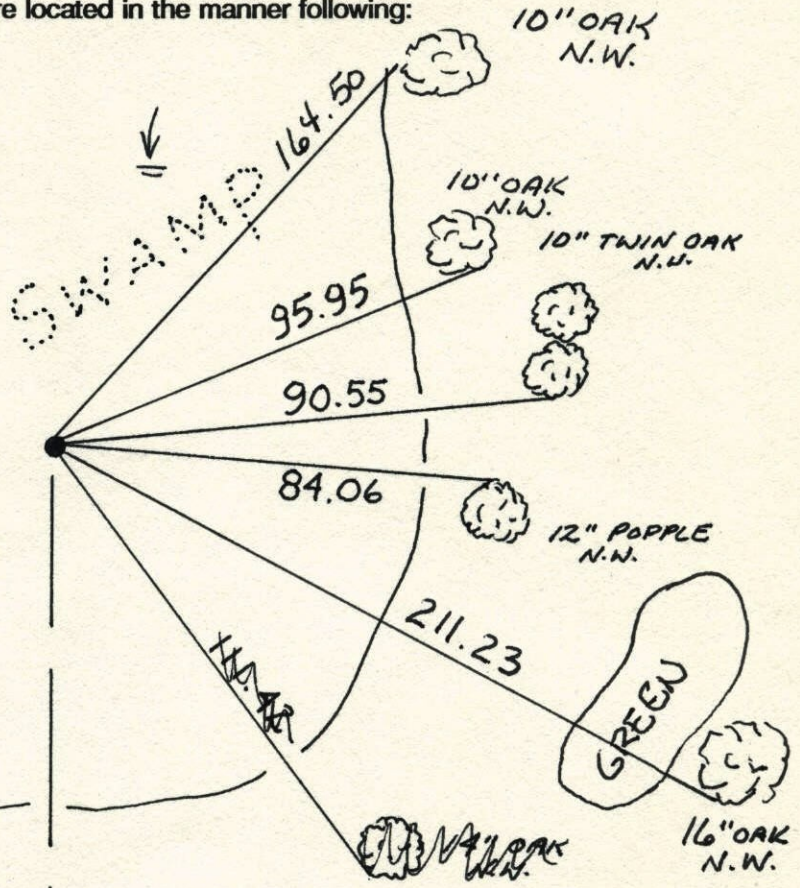 re located in the manner following:
10" OAK
N.W.
164.50
SWAMP
10" OAK
N.W.
10" TWIN OAK
N.W.
95.95
90.55
84.06
12" POPPLE
N.W.
211.23
GREEN
16" OAK
N.W.
OAK